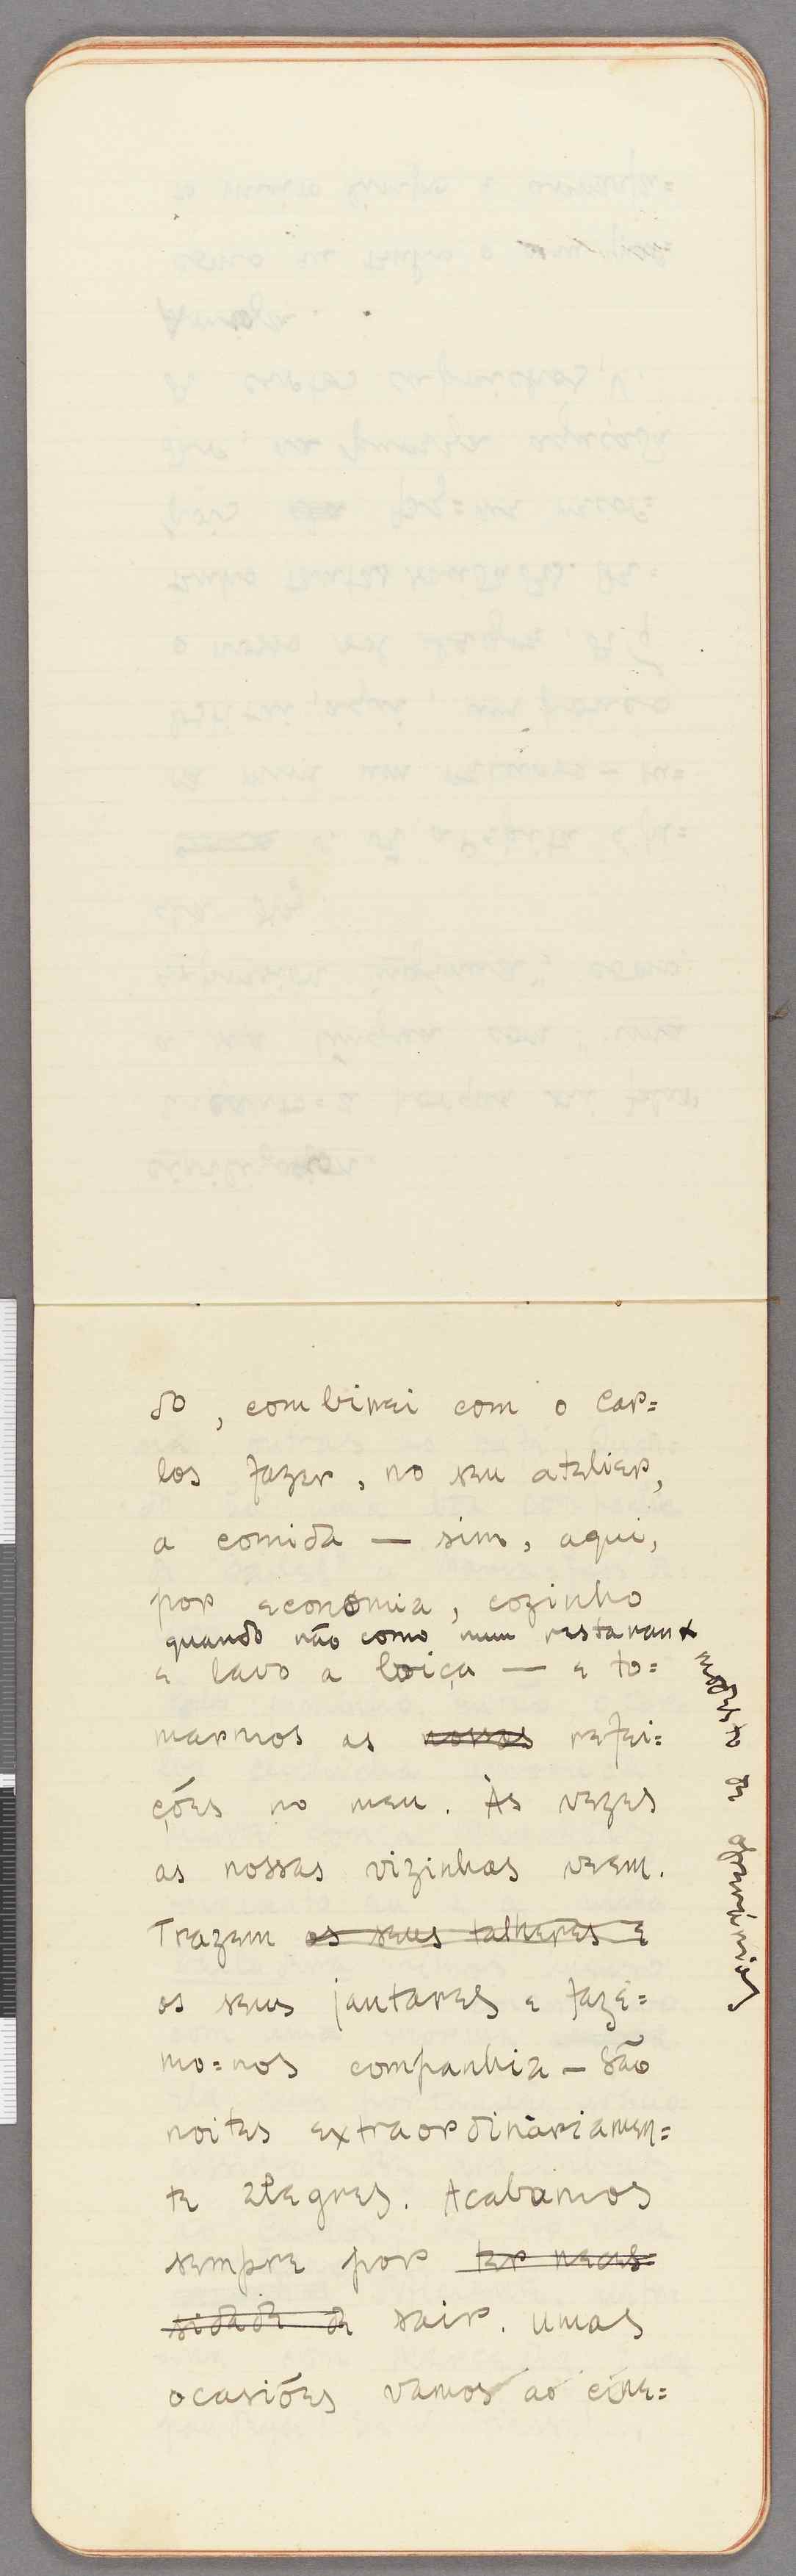 do, combinei com o Car=
los fazer, no seu atelier,
a comida — sim, aqui,
por economia, cozinho
quando não como num restaurant
modesto de
e lavo a loiça — e to=
marmos as nossas refei=
ções no meu. Às vezes
as nossas vizinhas veem.
Trazem os seus talheres e
os seus jantares e fazé=
mo=nos companhia — São
noites extraordináriamen=
te alegres. Acabamos
sempre por ter neces=
sidade de sair. Umas
ocasiões vamos ao cine=